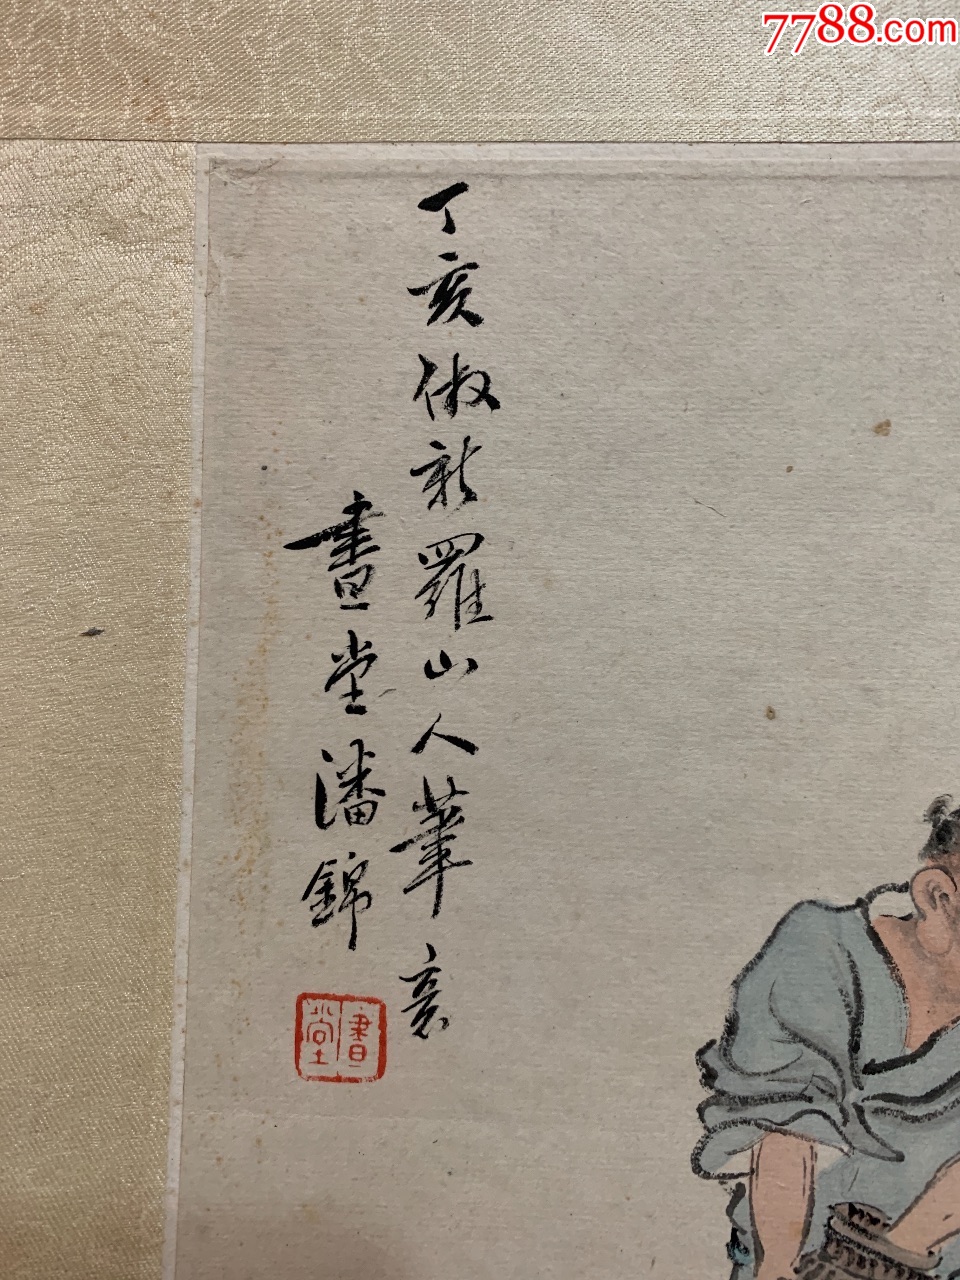 7788.com
丁亥倣新羅山人筆意
晝堂潘錦
晝堂